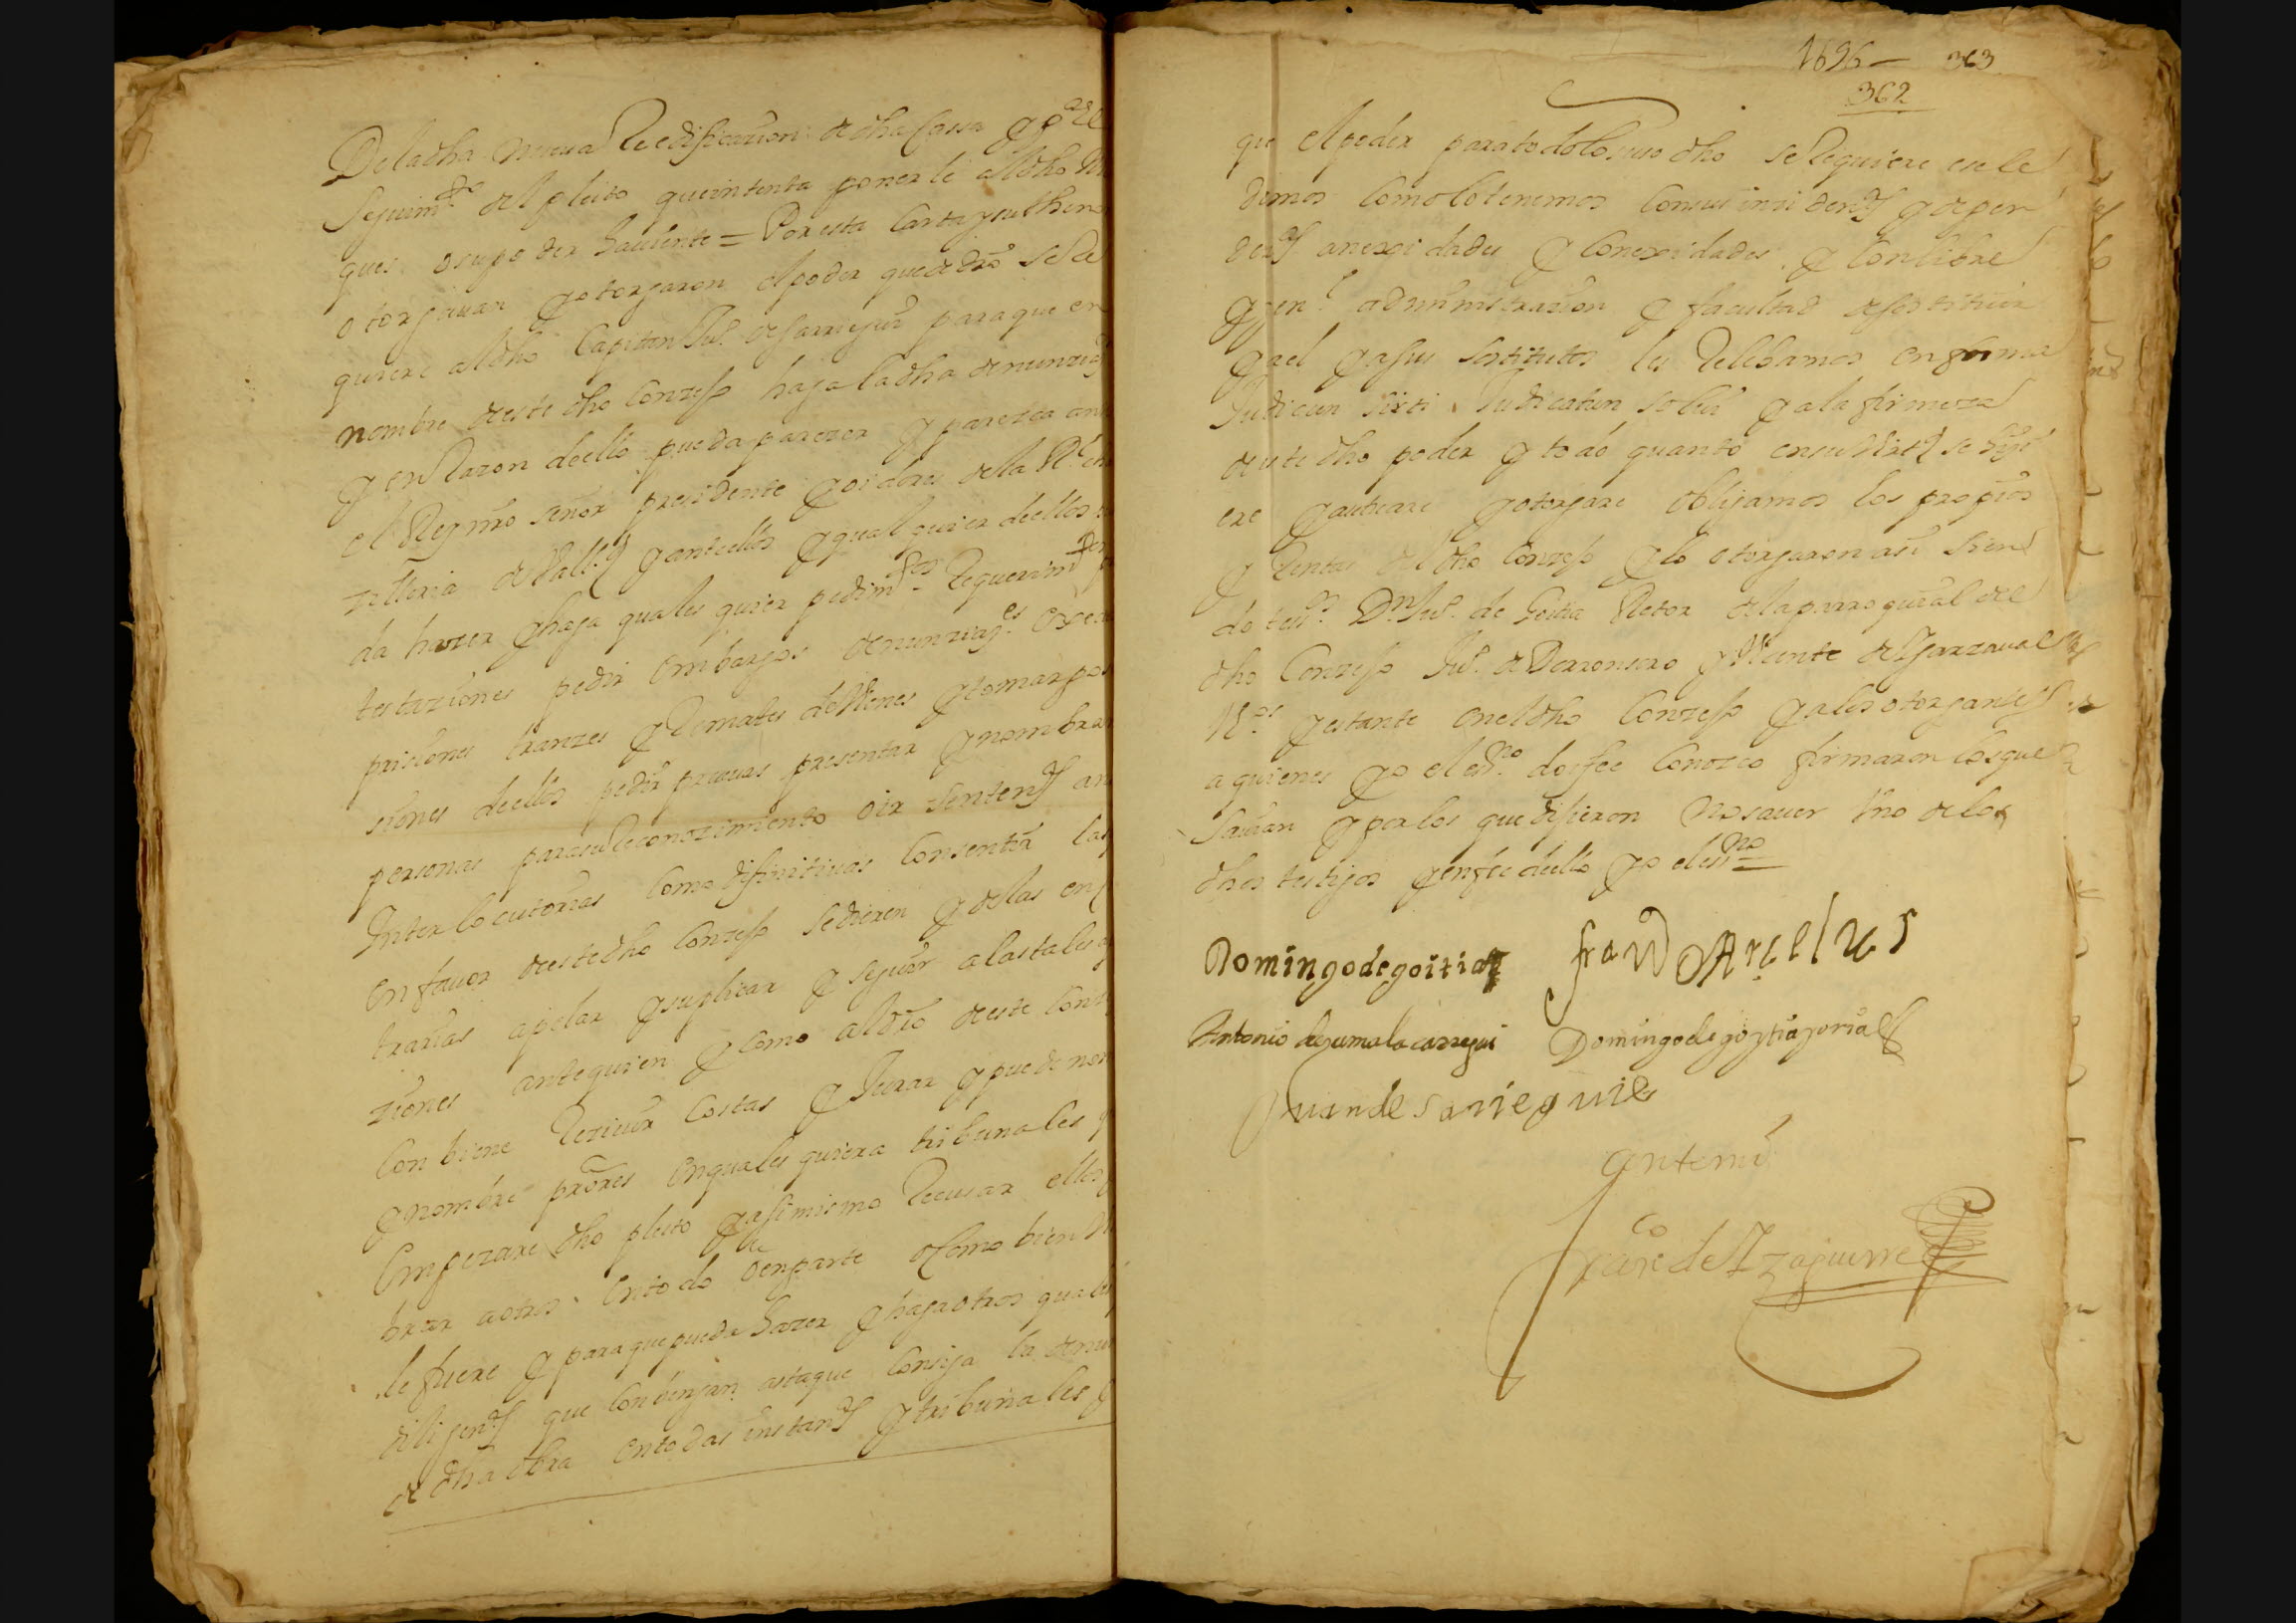 De la dha nueua Reedificazion de dha Cassa y p.ª el
Seguim.to del pleito que intenta ponerle al dho
ques o su poder hauiente = Por esta Carta y su thenor
otorgauan y otorgaron el poder que de dro se Re
quiere al dho Capitan Ju.º de Sarriegui para que en
nombre deste dho Conzejo haga la dha denunziaz
y en Razon dello pueda parezer y paresca ante
el Rey nro señor presidente y oidores de la R.l chan
zilleria de Vall.d y ante ellos y qual quier dellos
da hazer y haga quales quier pedim.tos Requerim.tos
testaziones pedir embargos denunziaz.es
prisiones tranzes y Remates de Vienes y tomar pos
siones dellos pedir prueuas presentar y nombrar
personas para su Reconozimiento oir sentenz.s
Interlocutorias como difinitiuas Consentir las
en fauor deste dho Conzejo se dieren y de las en
trarias apelar y suplicar y seguir a las tales
ziones ante quien y como al dro deste Conz
Conbiene Reziuir Costas y Jurar y puede non
y nombre prores en quales quiera tribunales
Empezare dho pleito y asi mismo Recusar ellos
brar a otros en todo o en parte o como bien
le fuere y para que pueda hazer y haga otros quales
diligenz.s que Conbengan asta que Consiga la
de dha obra en todas instanz.s y tribunales
1696 — 363
362
que el poder para todo lo suso dho se Requiere ese le
damos Como lo tenemos Con sus inzidenz.s y depen
denz.s anexidades y Conexidades y Con libre
y gen.l administrazion y facultad de sostituir
y a el y a sus sostitutos les Relebamos en forma
Judicium sisti Judicatun solui y a la firmeza
deste dho poder y todo quanto en su Virt.d se hizi
ere y autuare y otorgare obligamos los propios
y Rentas del dho Conzejo y lo otorgaron asi sien
do tess.os D.n Ju.º de Goitia Retor de la parroquial del
dho Conzejo Ju.º de Verronsoro y Vicente de Ygarzaual
V.os y estante en el dho Conzejo y a los otorgantes
a quienes yo el ess.no doi fee Conozco firmaron los que
sauian y por los que dijeron no sauer Vno de los
dhos testigos y en fee dello yo el ess.no =
Domingo de goitia
Antonio de çumalacarregui Domingo de goytia y oria
Juan de sarriegui
Ante mi
Fran.co de Yzaguirre